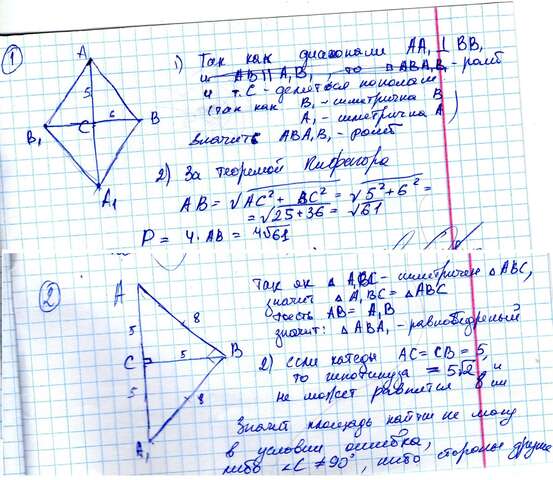 1
A
5
6
B₁
C
B
A₁
1) Так как диагонали AA₁ ⊥ BB₁
и AB ∥ A₁B₁, то ▱ ABA₁B₁ - ромб
и т. C - делятся пополам
(так как B₁ - симетрична B
A₁ - симетрична A)
значить ABA₁B₁ - ромб
2) За теоремой Пифагора
AB = √AC² + BC² = √5² + 6² =
= √25 + 36 = √61
P = 4 · AB = 4√61
2
A
5
8
C
5
B
5
8
A₁
Так як △ A₁BC - симетричен △ ABC,
значит △ A₁BC = △ ABC
тоесть AB = A₁B
значит: △ ABA₁ - равнобедреный
2) если катеты AC = CB = 5,
то гипотинуза = 5√2, и
не может равнятся 8 см
Значит площадь найти не могу
в условии ошибка,
либо ∠C ≠ 90°, либо стороны другие